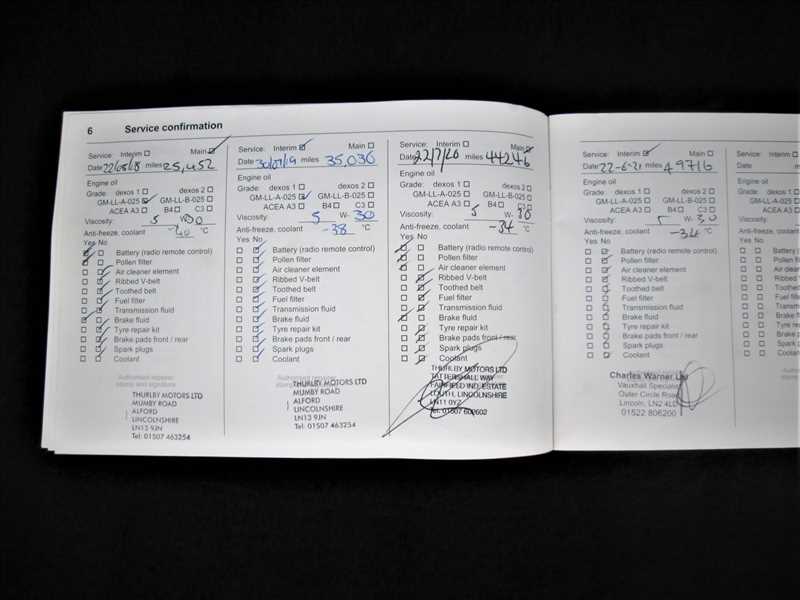 6 Service confirmation
Service: Interim Main
Date 22/05/18 miles 25,452
Engine oil
Grade: dexos 1 dexos 2
GM-LL-A-025 GM-LL-B-025
ACEA A3 B4 C3
Viscosity: 5 W- 30
Anti-freeze, coolant -40 °C
Yes No
Battery (radio remote control)
Pollen filter
Air cleaner element
Ribbed V-belt
Toothed belt
Fuel filter
Transmission fluid
Brake fluid
Tyre repair kit
Brake pads front / rear
Spark plugs
Coolant
Authorised repairer
stamp and signature
THURLBY MOTORS LTD
MUMBY ROAD
ALFORD
LINCOLNSHIRE
LN13 9JN
Tel: 01507 463254
Service: Interim Main
Date 30/07/19 miles 35,036
Engine oil
Grade: dexos 1 dexos 2
GM-LL-A-025 GM-LL-B-025
ACEA A3 B4 C3
Viscosity: 5 W- 30
Anti-freeze, coolant -38 °C
Yes No
Battery (radio remote control)
Pollen filter
Air cleaner element
Ribbed V-belt
Toothed belt
Fuel filter
Transmission fluid
Brake fluid
Tyre repair kit
Brake pads front / rear
Spark plugs
Coolant
Authorised repairer
THURLBY MOTORS LTD
MUMBY ROAD
ALFORD
LINCOLNSHIRE
LN13 9JN
Tel: 01507 463254
Service: Interim Main
Date 22/7/20 miles 44246
Engine oil
Grade: dexos 1 dexos 2
GM-LL-A-025 GM-LL-B-025
ACEA A3 B4 C3
Viscosity: 5 W- 30
Anti-freeze, coolant -34 °C
Yes No
Battery (radio remote control)
Pollen filter
Air cleaner element
Ribbed V-belt
Toothed belt
Fuel filter
Transmission fluid
Brake fluid
Tyre repair kit
Brake pads front / rear
Spark plugs
Coolant
THURLBY MOTORS LTD
TATTERSHALL WAY
FAIRFIELD IND. ESTATE
LOUTH, LINCOLNSHIRE
LN11 0YZ
Tel: 01507 600602
Service: Interim Main
Date 22-6-21 miles 49716
Engine oil
Grade: dexos 1 dexos 2
GM-LL-A-025 GM-LL-B-025
ACEA A3 B4 C3
Viscosity: 5 W- 30
Anti-freeze, coolant -34 °C
Yes No
Battery (radio remote control)
Pollen filter
Air cleaner element
Ribbed V-belt
Toothed belt
Fuel filter
Transmission fluid
Brake fluid
Tyre repair kit
Brake pads front / rear
Spark plugs
Coolant
Charles Warner Ltd
Vauxhall Specialist
Outer Circle Road
Lincoln, LN2 4LD
01522 806200
Service:
Date
Engine oil
Grade: de
GM-LL-A
ACE
Viscosity:
Anti-freeze,
Yes No